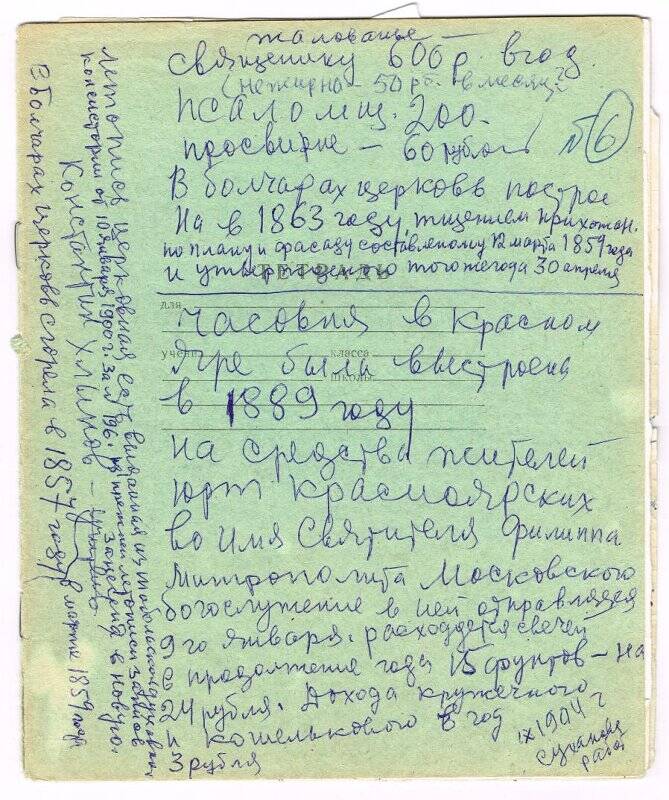 жалованье —
священику 600 р. в год
(нежирно – 50 рб. в месяц?
псаломщ. 200.
просвирне – 60 рублей
№ 6
В болчарах церковь построе
на в 1863 году, тщением прихожан.
по плану и фасаду составленому 12 марта 1859 года
и утвержденного того же года 30 апреля
ТЕТРАДЬ
для
Часовня в Красном
Яре была выстроена
учени
класса
школы
в 1889 году
на средства жителей
юрт Красноярских
во имя Святителя Филиппа
митрополита Московского
богослужение в ней отправляется
9го января. расходуется свечей
в продолжение года 15 фунтов – на
24 рубля. Дохода кружечного
и кошелькового в год
3 рубля
IX 1904 г
Летопись церковная есть выданная из тобольской духовной
консистории от 10 января 1900 г. за № 196. из прежней летописи записов
занесена в новую.
Константин Хлынов –
В болчарах церковь сгорела в 1857 году
в марте 1859 года